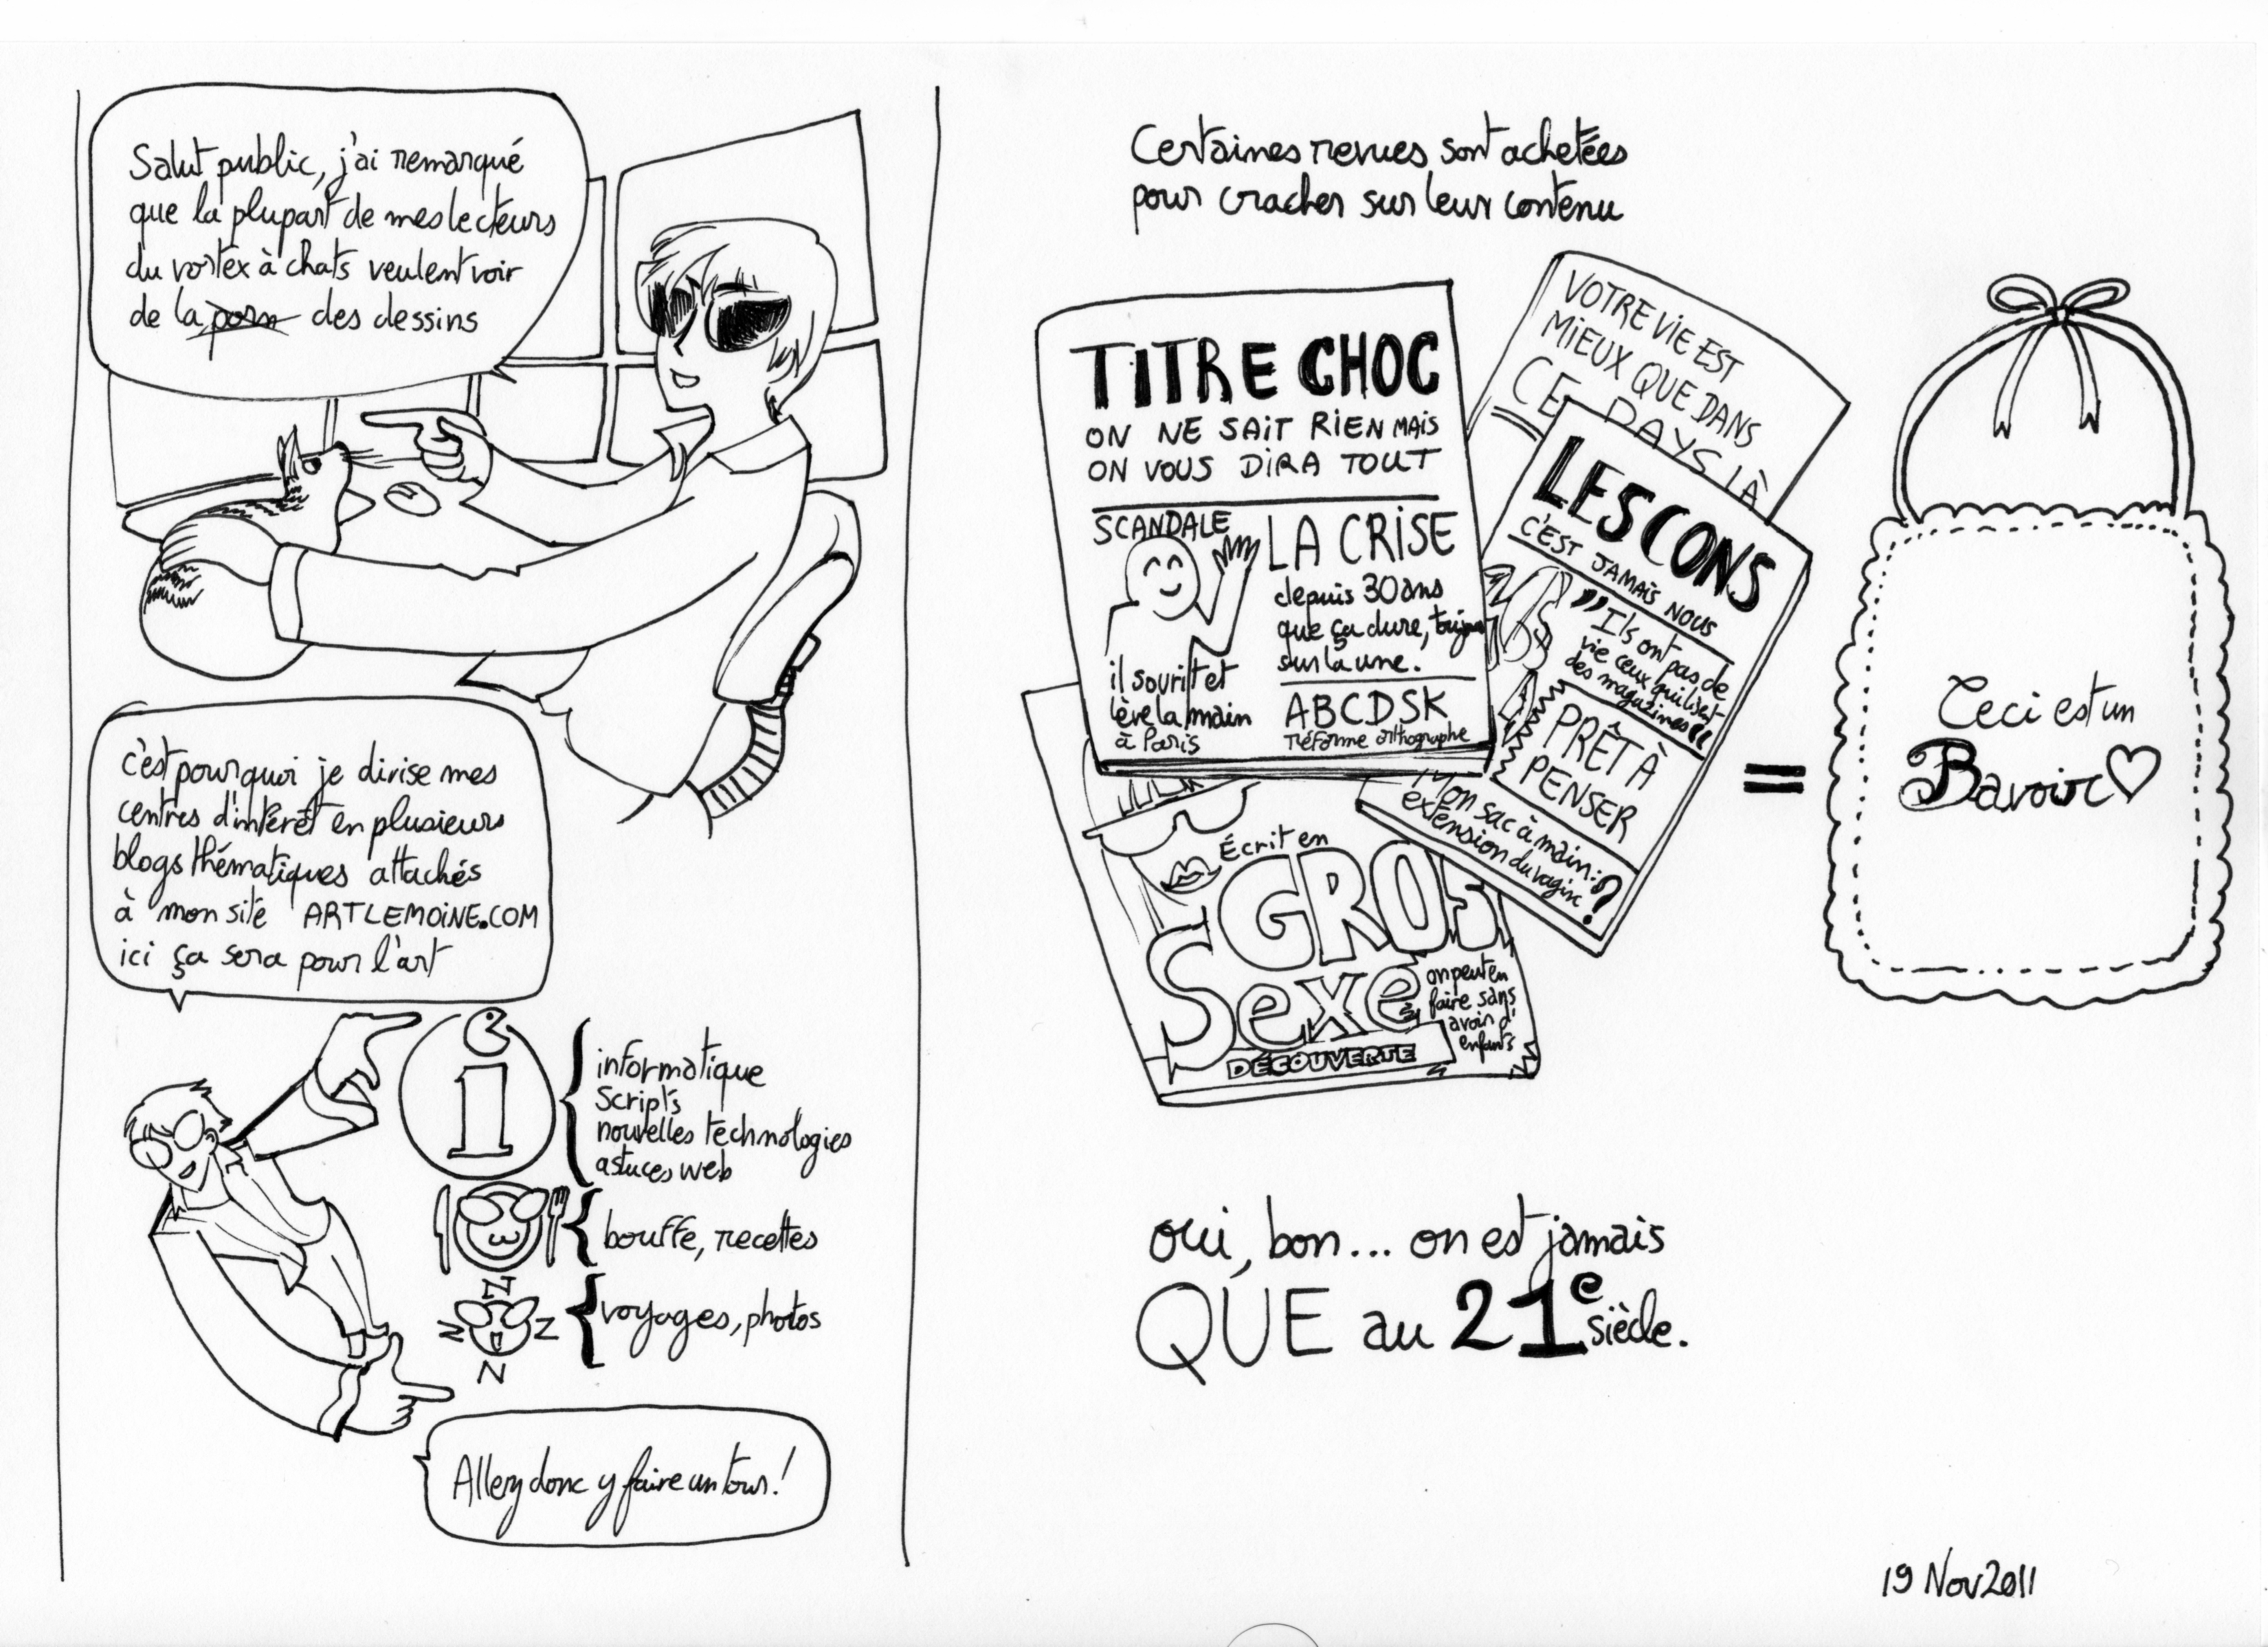 Salut public, j'ai remarqué
que la plupart de mes lecteurs
du vortex à chats veulent voir
de la porn des dessins
c'est pourquoi je divise mes
centres d'intérêt en plusieurs
blogs thématiques attachés
à mon site ARTLEMOINE.COM
ici ça sera pour l'art
i
informatique
scripts
nouvelles technologies
astuces web
bouffe, recettes
N
Z Z
N
voyages, photos
Allez donc y faire un tour!
Certaines revues sont achetées
pour cracher sur leur contenu
TITRE CHOC
ON NE SAIT RIEN MAIS
ON VOUS DIRA TOUT
SCANDALE
il sourit et
lève la main
à Paris
LA CRISE
depuis 30 ans
que ça dure, toujours
sur la une.
ABCDSK
réforme orthographe
VOTRE VIE EST
MIEUX QUE DANS
CE PAYS LÀ
LES CONS
C'EST JAMAIS NOUS
"Ils ont pas de
vie ceux qui lisent
des magazines"
PRÊT À
PENSER
Mon sac à main:
extension du vagin
?
Écrit en
GROS
Sexe
on peut en
faire sans
avoir d'
enfants
DÉCOUVERTE
=
Ceci est un
Bavoir
oui, bon... on est jamais
QUE au 21e siècle.
19 Nov 2011